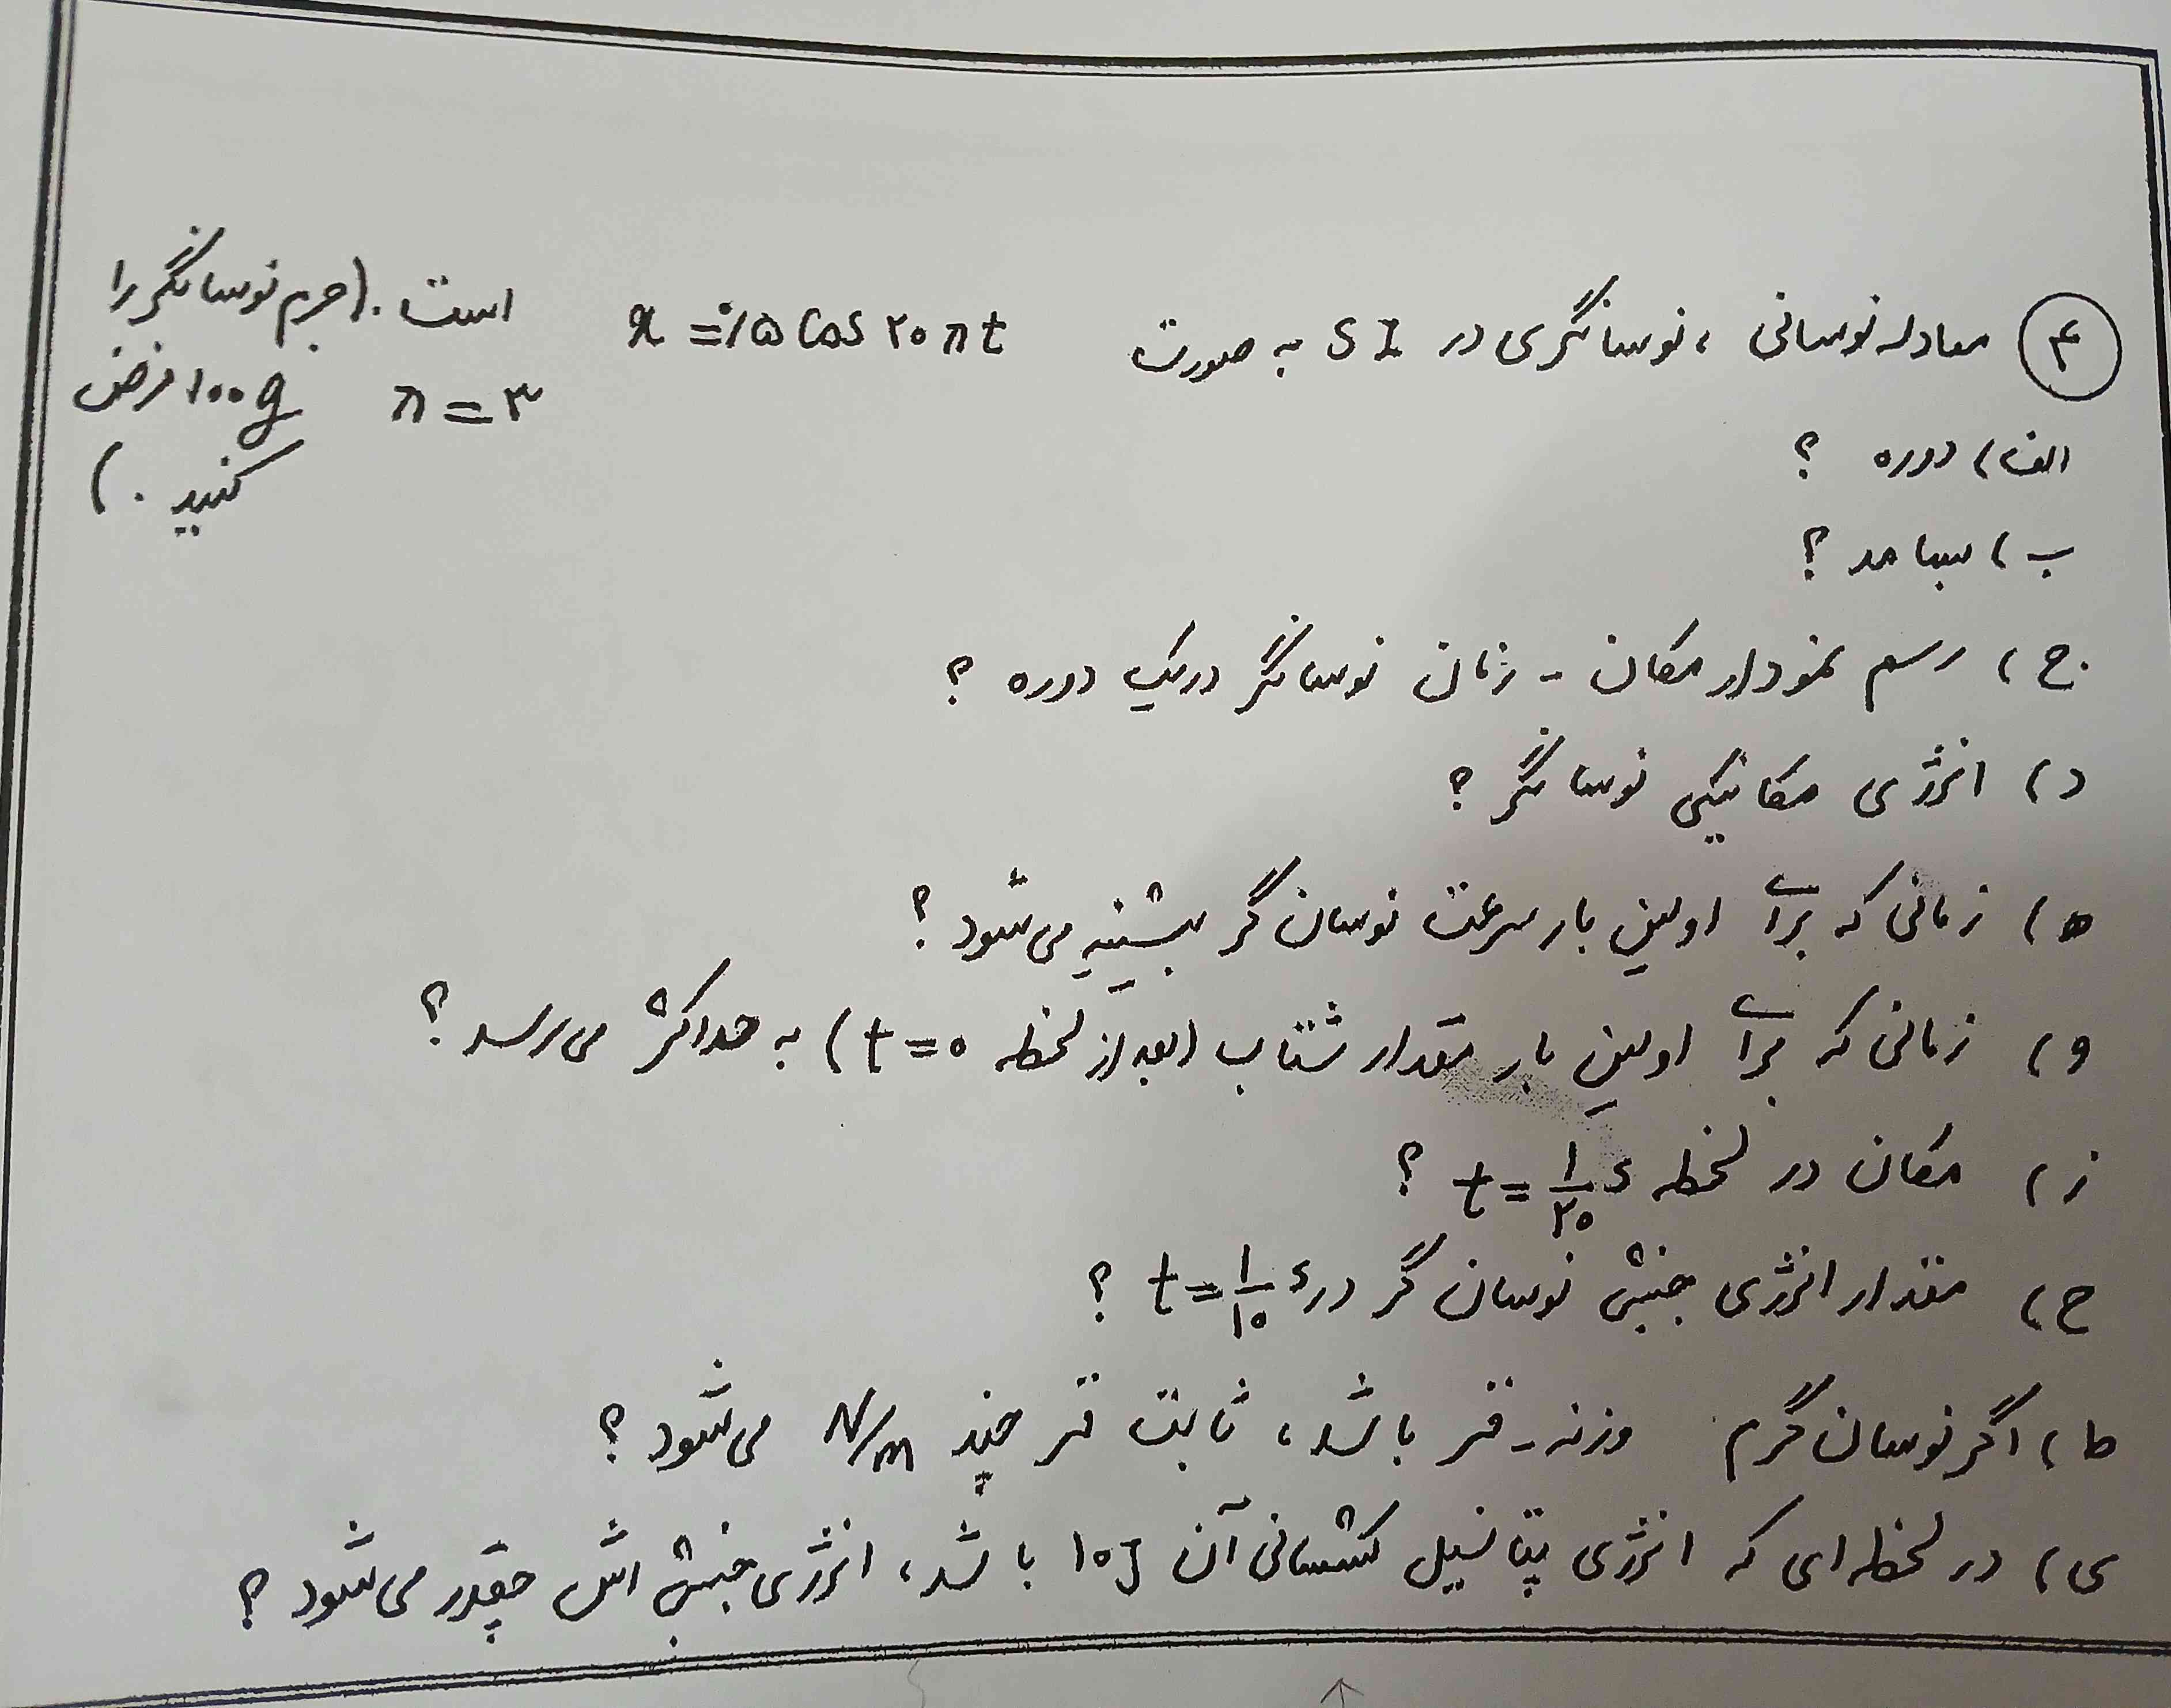 ۴) معادله نوسانی، نوسانگری در SI به صورت x = ۰/۵ cos ۲۰πt است. (جرم نوسانگر را
π = ۳ ۱۰۰g فرض
کنید.)
الف) دوره ؟
ب) بسامد ؟
ج) رسم نمودار مکان - زمان نوسانگر در یک دوره ؟
د) انرژی مکانیکی نوسانگر ؟
ه) زمانی که برای اولین بار سرعت نوسان گر بیشینه می‌شود ؟
و) زمانی که برای اولین بار مقدار شتاب (بعد از لحظه t = ۰) به حداکثر می‌رسد ؟
ز) مکان در لحظه t = ۱/۲۰ s ؟
ح) مقدار انرژی جنبشی نوسان گر در t = ۱/۱۰ s ؟
ط) اگر نوسان گرم وزنه - فنر باشد، ثابت فنر چند N/m می‌شود ؟
ی) در لحظه‌ای که انرژی پتانسیل کشسانی آن ۱۰J باشد، انرژی جنبشی اش چقدر می‌شود ؟